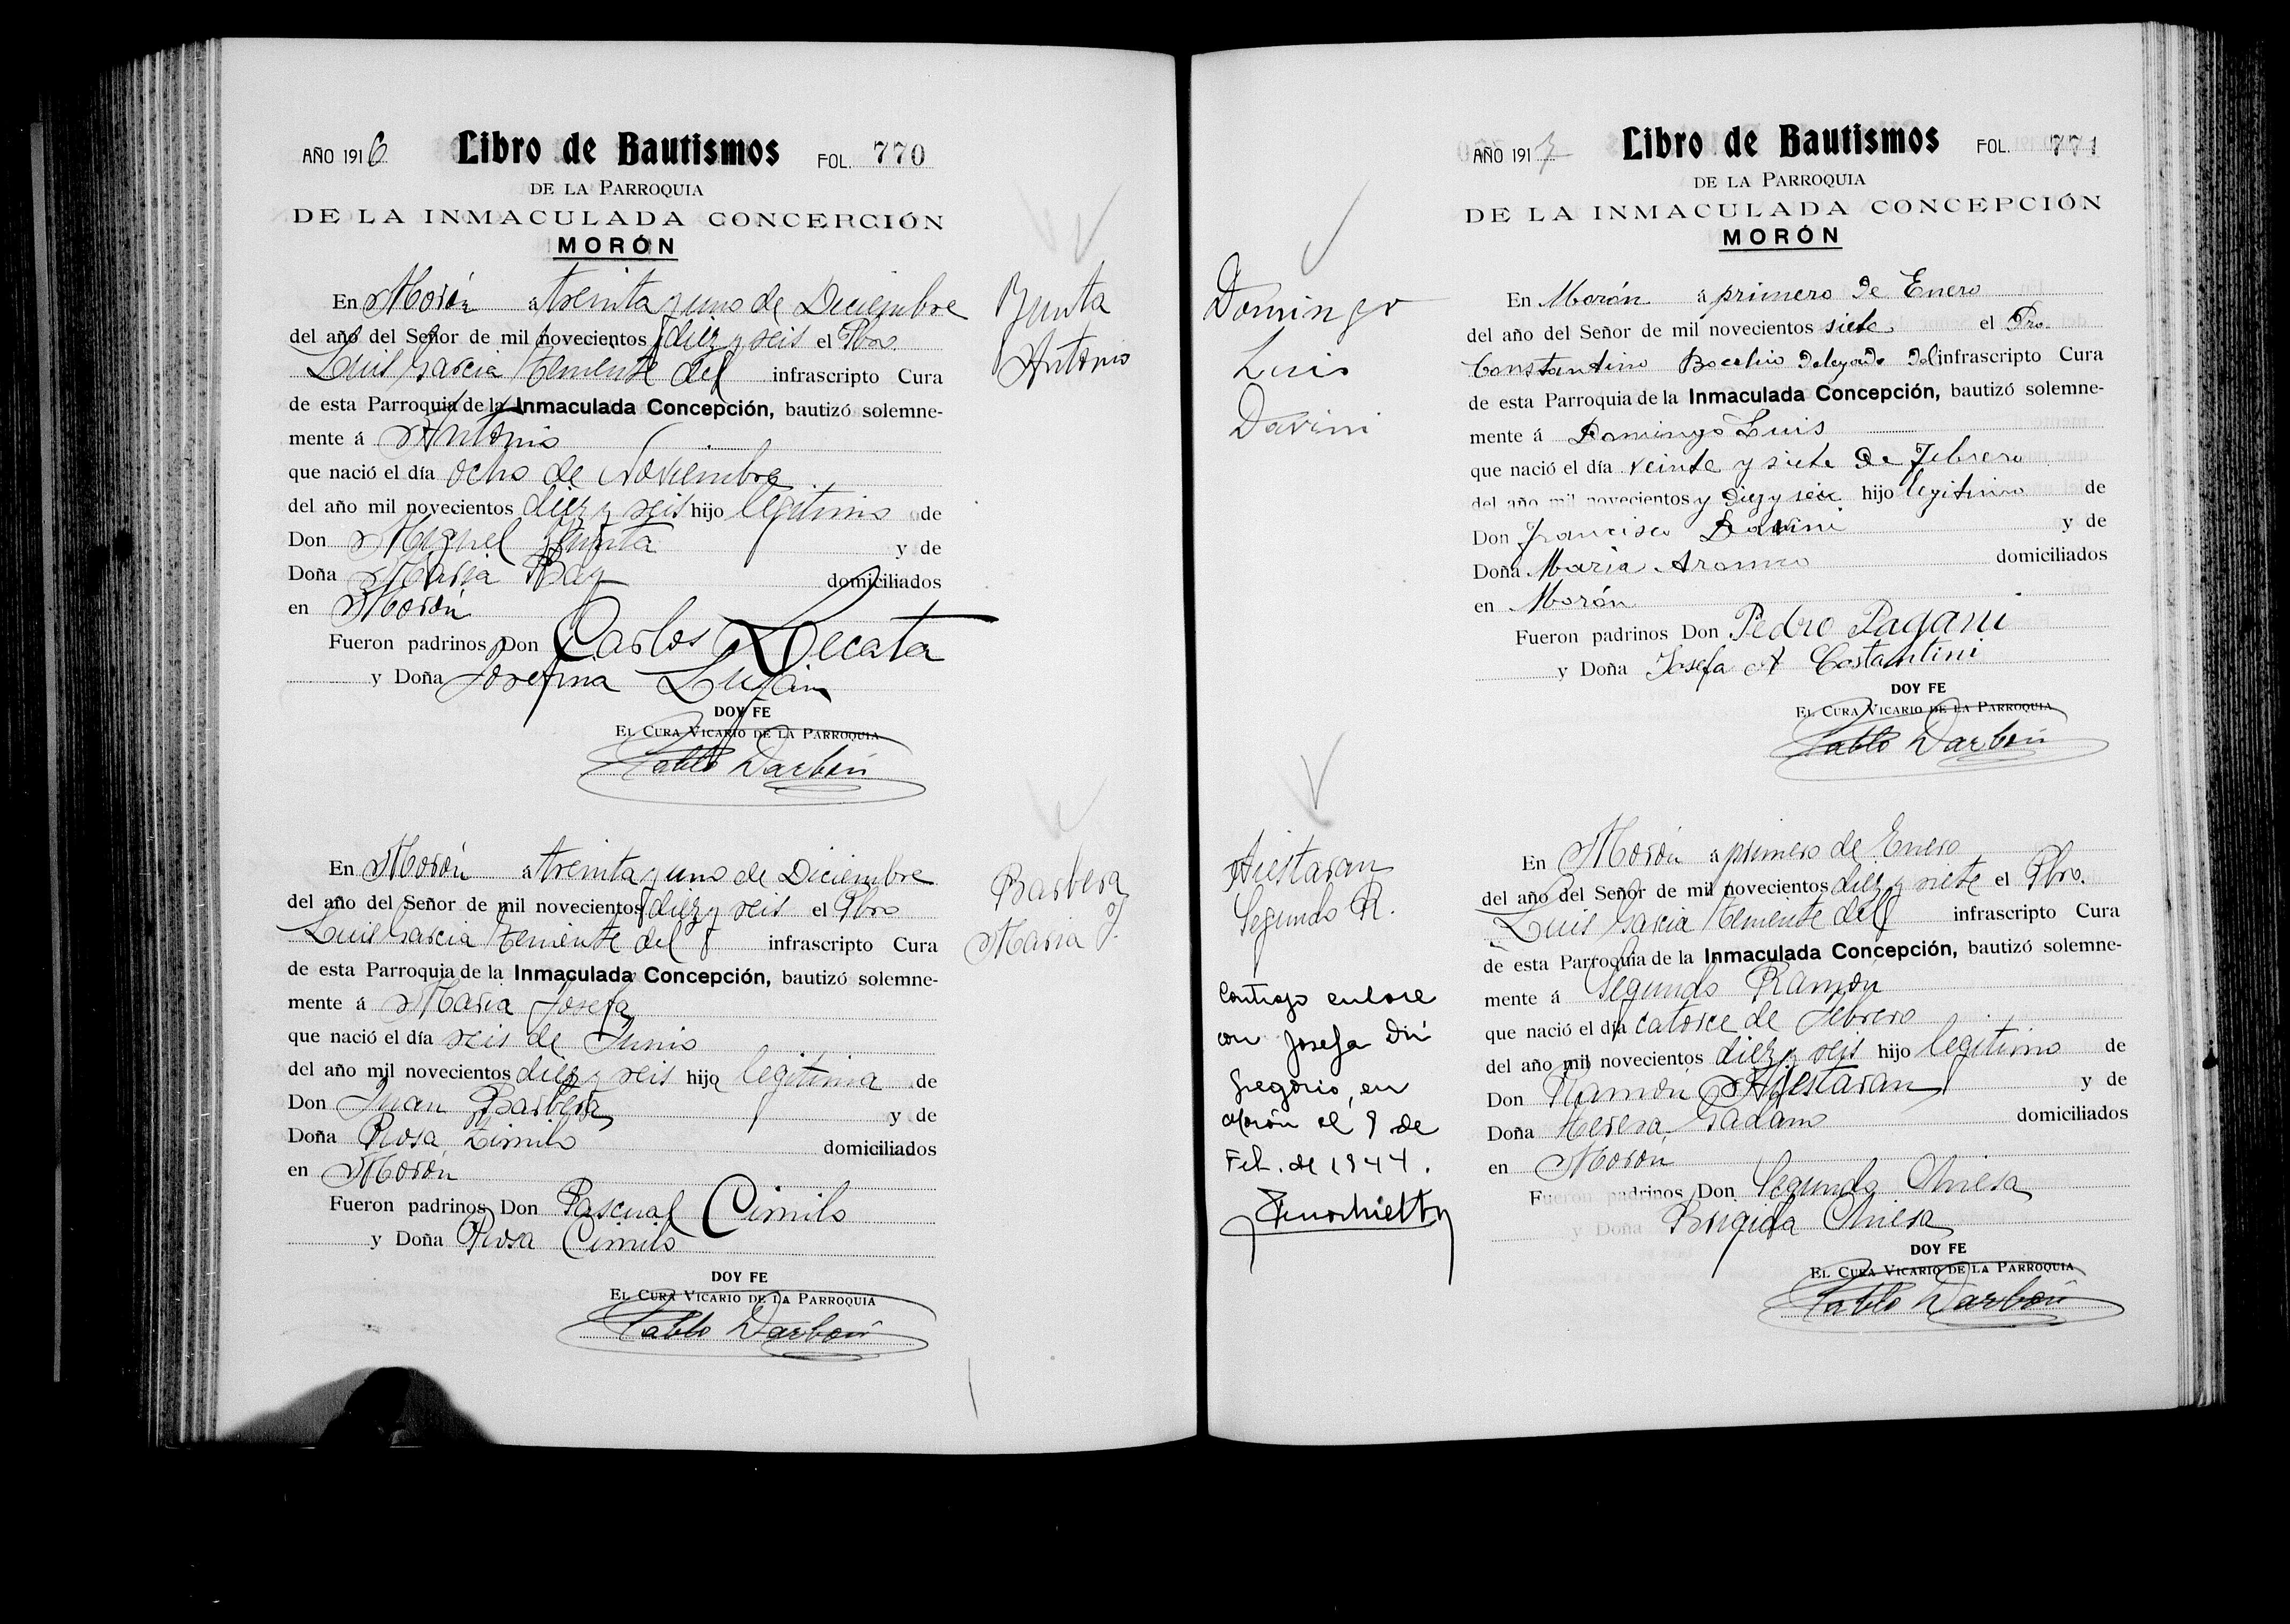 AÑO 1916 Libro de Bautismos FOL. 770
DE LA PARROQUIA
DE LA INMACULADA CONCEPCIÓN
MORÓN
En Morón á treinta y uno de Diciembre
del año del Señor de mil novecientos diez y seis el Pbro.
Luis Garcia Teniente del infrascripto Cura
de esta Parroquia de la Inmaculada Concepción, bautizó solemne-
mente á Antonio
que nació el día ocho de Noviembre
del año mil novecientos diez y seis hijo legitimo de
Don Miguel y de
Doña Maria domiciliados
en Morón
Fueron padrinos Don Carlos Decata
y Doña Josefina Luján
DOY FE
EL CURA VICARIO DE LA PARROQUIA
Pablo Darbón
Antonio
En Morón á treinta y uno de Diciembre
del año del Señor de mil novecientos diez y seis el Pbro
Luis Garcia Teniente del infrascripto Cura
de esta Parroquia de la Inmaculada Concepción, bautizó solemne-
mente á Maria Josefa
que nació el día seis de Junio
del año mil novecientos diez y seis hija legitima de
Don Juan Barbera y de
Doña Rosa Zimilo domiciliados
en Morón
Fueron padrinos Don Pascual Cimilo
y Doña Rosa Cimilo
DOY FE
EL CURA VICARIO DE LA PARROQUIA
Pablo Darbón
Barbera
Maria J.
AÑO 1917 Libro de Bautismos FOL. 771
DE LA PARROQUIA
DE LA INMACULADA CONCEPCIÓN
MORÓN
Domingo
Luis
Davini
En Morón á primero de Enero
del año del Señor de mil novecientos siete el Pro.
Constantino delegado del infrascripto Cura
de esta Parroquia de la Inmaculada Concepción, bautizó solemne-
mente á Domingo Luis
que nació el día veinte y siete de Febrero
del año mil novecientos y diez y seis hijo legitimo de
Don Francisco Davini y de
Doña Maria domiciliados
en Morón
Fueron padrinos Don Pedro Pagani
y Doña Josefa A Costantini
DOY FE
EL CURA VICARIO DE LA PARROQUIA
Pablo Darbón
Aiestaran
Segundo R.
Contrajo enlace
con Josefa Di
Gregorio, en
Morón el 9 de
Feb. de 1944.
En Morón á primero de Enero
del año del Señor de mil novecientos diez y siete el Pbro.
Luis Garcia Teniente del infrascripto Cura
de esta Parroquia de la Inmaculada Concepción, bautizó solemne-
mente á Segundo Ramón
que nació el día catorce de Febrero
del año mil novecientos diez y seis hijo legitimo de
Don Ramón Aiestaran y de
Doña Teresa domiciliados
en Morón
Fueron padrinos Don Segundo Chiesa
y Doña Brigida Chiesa
DOY FE
EL CURA VICARIO DE LA PARROQUIA
Pablo Darbón